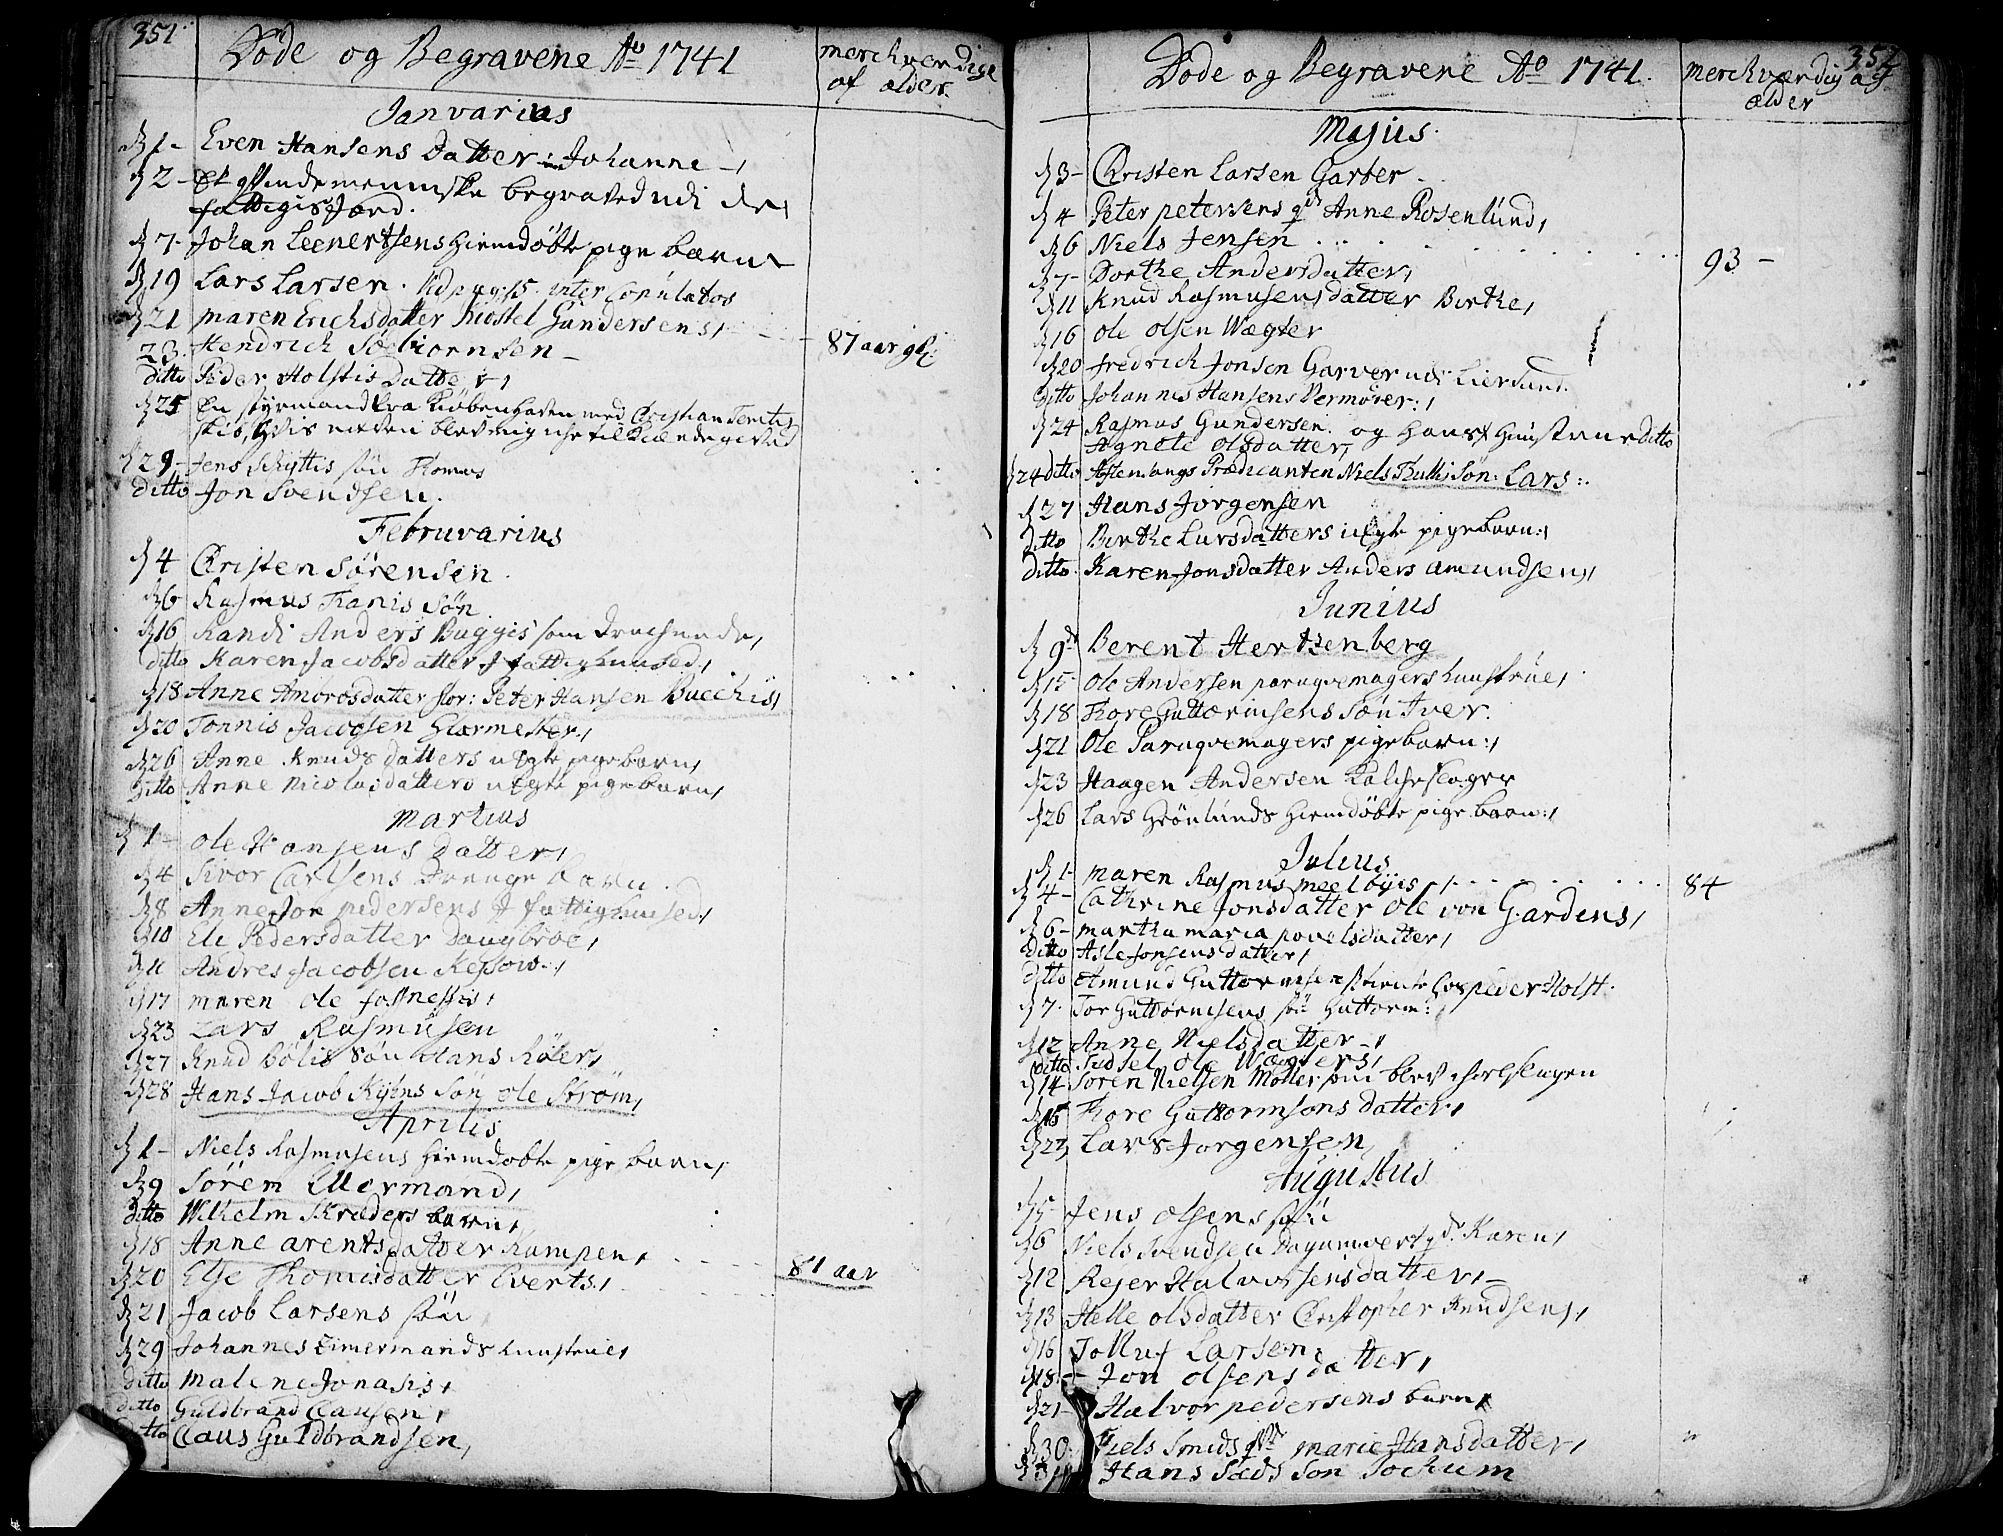 351
Døde og Begravene Ao 1741
merckverdige
af ælder.
Janvarius
d 1- Even Hansens Datter: Johanne
d 2- Et qvindemenniske begraved udi de
fattigis Jord.
d 7- Johan Leenertsens hiemdøbte pige barn
d 19 Lars Larsen. Vid pag: 15. inter Copulatos
d 21 maren Erichsdatter Kiostel Gundersens
23. Hendrich Sørbiornsen - 87 aar gl:
ditto Peder Holstis Datter
d 25 En styrmand fra Kiøbenhafen med Christian
skib, hvis nafen blev mig iche tilkiende gifvet
d 29- Jens Schyttis søn Thomas
ditto Jon Svendsen.
Februvarius
d 4 Christen Sørensen.
d 6 Rasmus Thanis Søn
d 16 Randi Anders Buggis som druchnede
ditto Karen Jacobsdatter J fattighuused
d 18 Anne Amorosdatter for: Peter Hansen Buechis
d 20 Tønnis Jacogsen Glarmester
d 26 Anne Knudsdatters uegte pigebarn
ditto Anne Nicolasdatters uegte pigebarn
Martius
d 1- Ole Hansens datter
d 4 Sivor Carlsens Drenge barn.
d 8 Anne Jon pedersens J fattighuused
d 10 Eli Pedersdatter Daugbroe
d 11 Andres Jacobsen Resow
d 17 maren ole fossnessis
d 23 Lars Rasmusen
d 27 Knud Bølis Søn Hans Røler
d 28 Hans Jacob Kyhns Søn ole Strøm
Aprilis
d 1- Niels Rasmusens hiemdøbte pige barn
d 9 Sørem Ellermand
ditto Wilhelm Skreders barn
d 18 Anne arentsdatter Kampen
d 20 Elje Thomisdatter Everts 81 aar
d 21 Jacob Larsens søn
d 29 Johannes timermands huustrue
ditto Malene Jonasis
ditto Guldbrand Clausen
ditto Claus Guldbrandsen
352
Døde og Begravene Ao 1741.
merckværdig af
ælder
Majus.
d 3- Christen Larsen Garber
d 4 Peter petersens qv Anne Rosenlund
d 6 Niels Jensen 93 -
d 7- Dorthe Andersdatter
d 11 Knud Rasmusens datter Birthe
d 16 ole olsen Wægter
d 20 fredrick Jonsen Garver udi Liersund.
ditto Johannis Hansens
d 24 Rasmus Gundersen. og hans huustrue ditto
Agnete olsdatter
d 24 ditto Prædicanten Niels Søn: Lars
d 27 Hans Jorgensen
ditto Birthe Larsdatters uegte pigebarn
ditto Karen Jonsdatter Anders Amundsens
Junius
d 9 Berent Hertzenberg
d 15 ole Andersen paruqvemagers huustrue
d 18 Thore Guttormsens søn Iver.
d 21 Ole Paruqvemagers pigebarn
d 23 Haagen Andersen Kalcheslager
d 26 Lars Grönlunds hiemdøbte pige barn
Julius
d 1- maren Rasmus meelbyes 84
d 4- Cathrine Jonsdatter ole von Gardens
d 6- martha maria povelsdatter
ditto Asle Jonsens datter
ditto Amund Guttormsen tiente hos peder Holst.
d 7- Tor Guttormsens søn Guttorm
d 12 Anne Nielsdatter
ditto Sidsel ole Wægters
d 14 Søren Nielsen Møller som blev ihielslagen
d 15 Thore Guttormsons datter
d 22 Lars Jorgensen
Augustus
d 5- Jens olsens søn
d 6 Niels Svendsen qv. Karen
d 12 Rejer Halvorsens datter
d 13 Helle olsdatter Christopher Knudsens
d 16 Tolluf Larsen
d 18- Jon olsens datter
d 21- Halvor pedersens barn
d 30 Niels Smids qv marie Hansdatter
d 31 Hans Sæds Søn Jochum